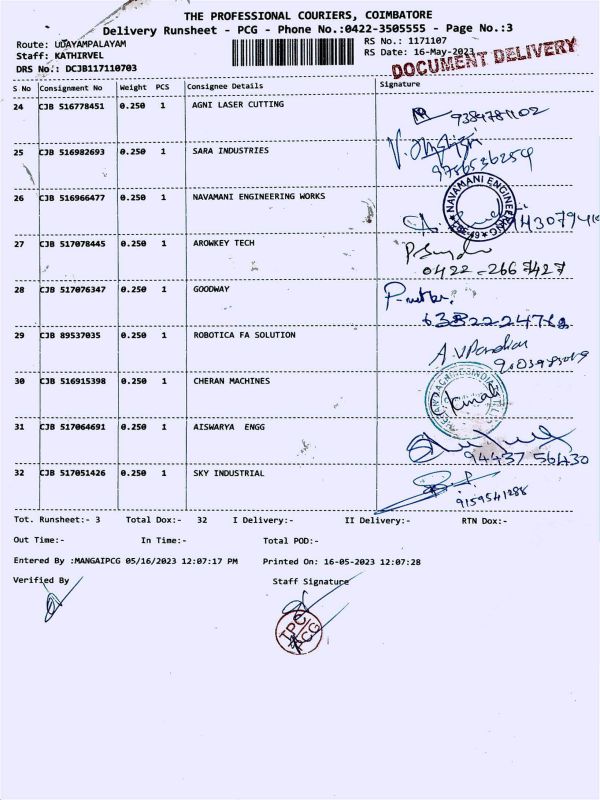 THE PROFESSIONAL COURIERS, COIMBATORE
Delivery Runsheet - PCG - Phone No.:0422-3505555 - Page No.:3
Route: UDAYAMPALAYAM
RS No.: 1171107
Staff: KATHIRVEL
RS Date: 16-May-2023
DRS No.: DCJB117110703
DOCUMENT DELIVERY
S No Consignment No Weight PCS Consignee Details Signature
24 CJB 516778451 0.250 1 AGNI LASER CUTTING
9384781102
25 CJB 516982693 0.250 1 SARA INDUSTRIES
9756536254
26 CJB 516966477 0.250 1 NAVAMANI ENGINEERING WORKS
NAVAMANI ENGINEERING
27 CJB 517078445 0.250 1 AROWKEY TECH
0422-2667427
28 CJB 517076347 0.250 1 GOODWAY
29 CJB 89537035 0.250 1 ROBOTICA FA SOLUTION
A.V Pandian
30 CJB 516915398 0.250 1 CHERAN MACHINES
31 CJB 517064691 0.250 1 AISWARYA ENGG
94437 56430
32 CJB 517051426 0.250 1 SKY INDUSTRIAL
9159541288
Tot. Runsheet:- 3 Total Dox:- 32 I Delivery:- II Delivery:- RTN Dox:-
Out Time:- In Time:- Total POD:-
Entered By :MANGAIPCG 05/16/2023 12:07:17 PM Printed On: 16-05-2023 12:07:28
Verified By Staff Signature
TPC
PCG